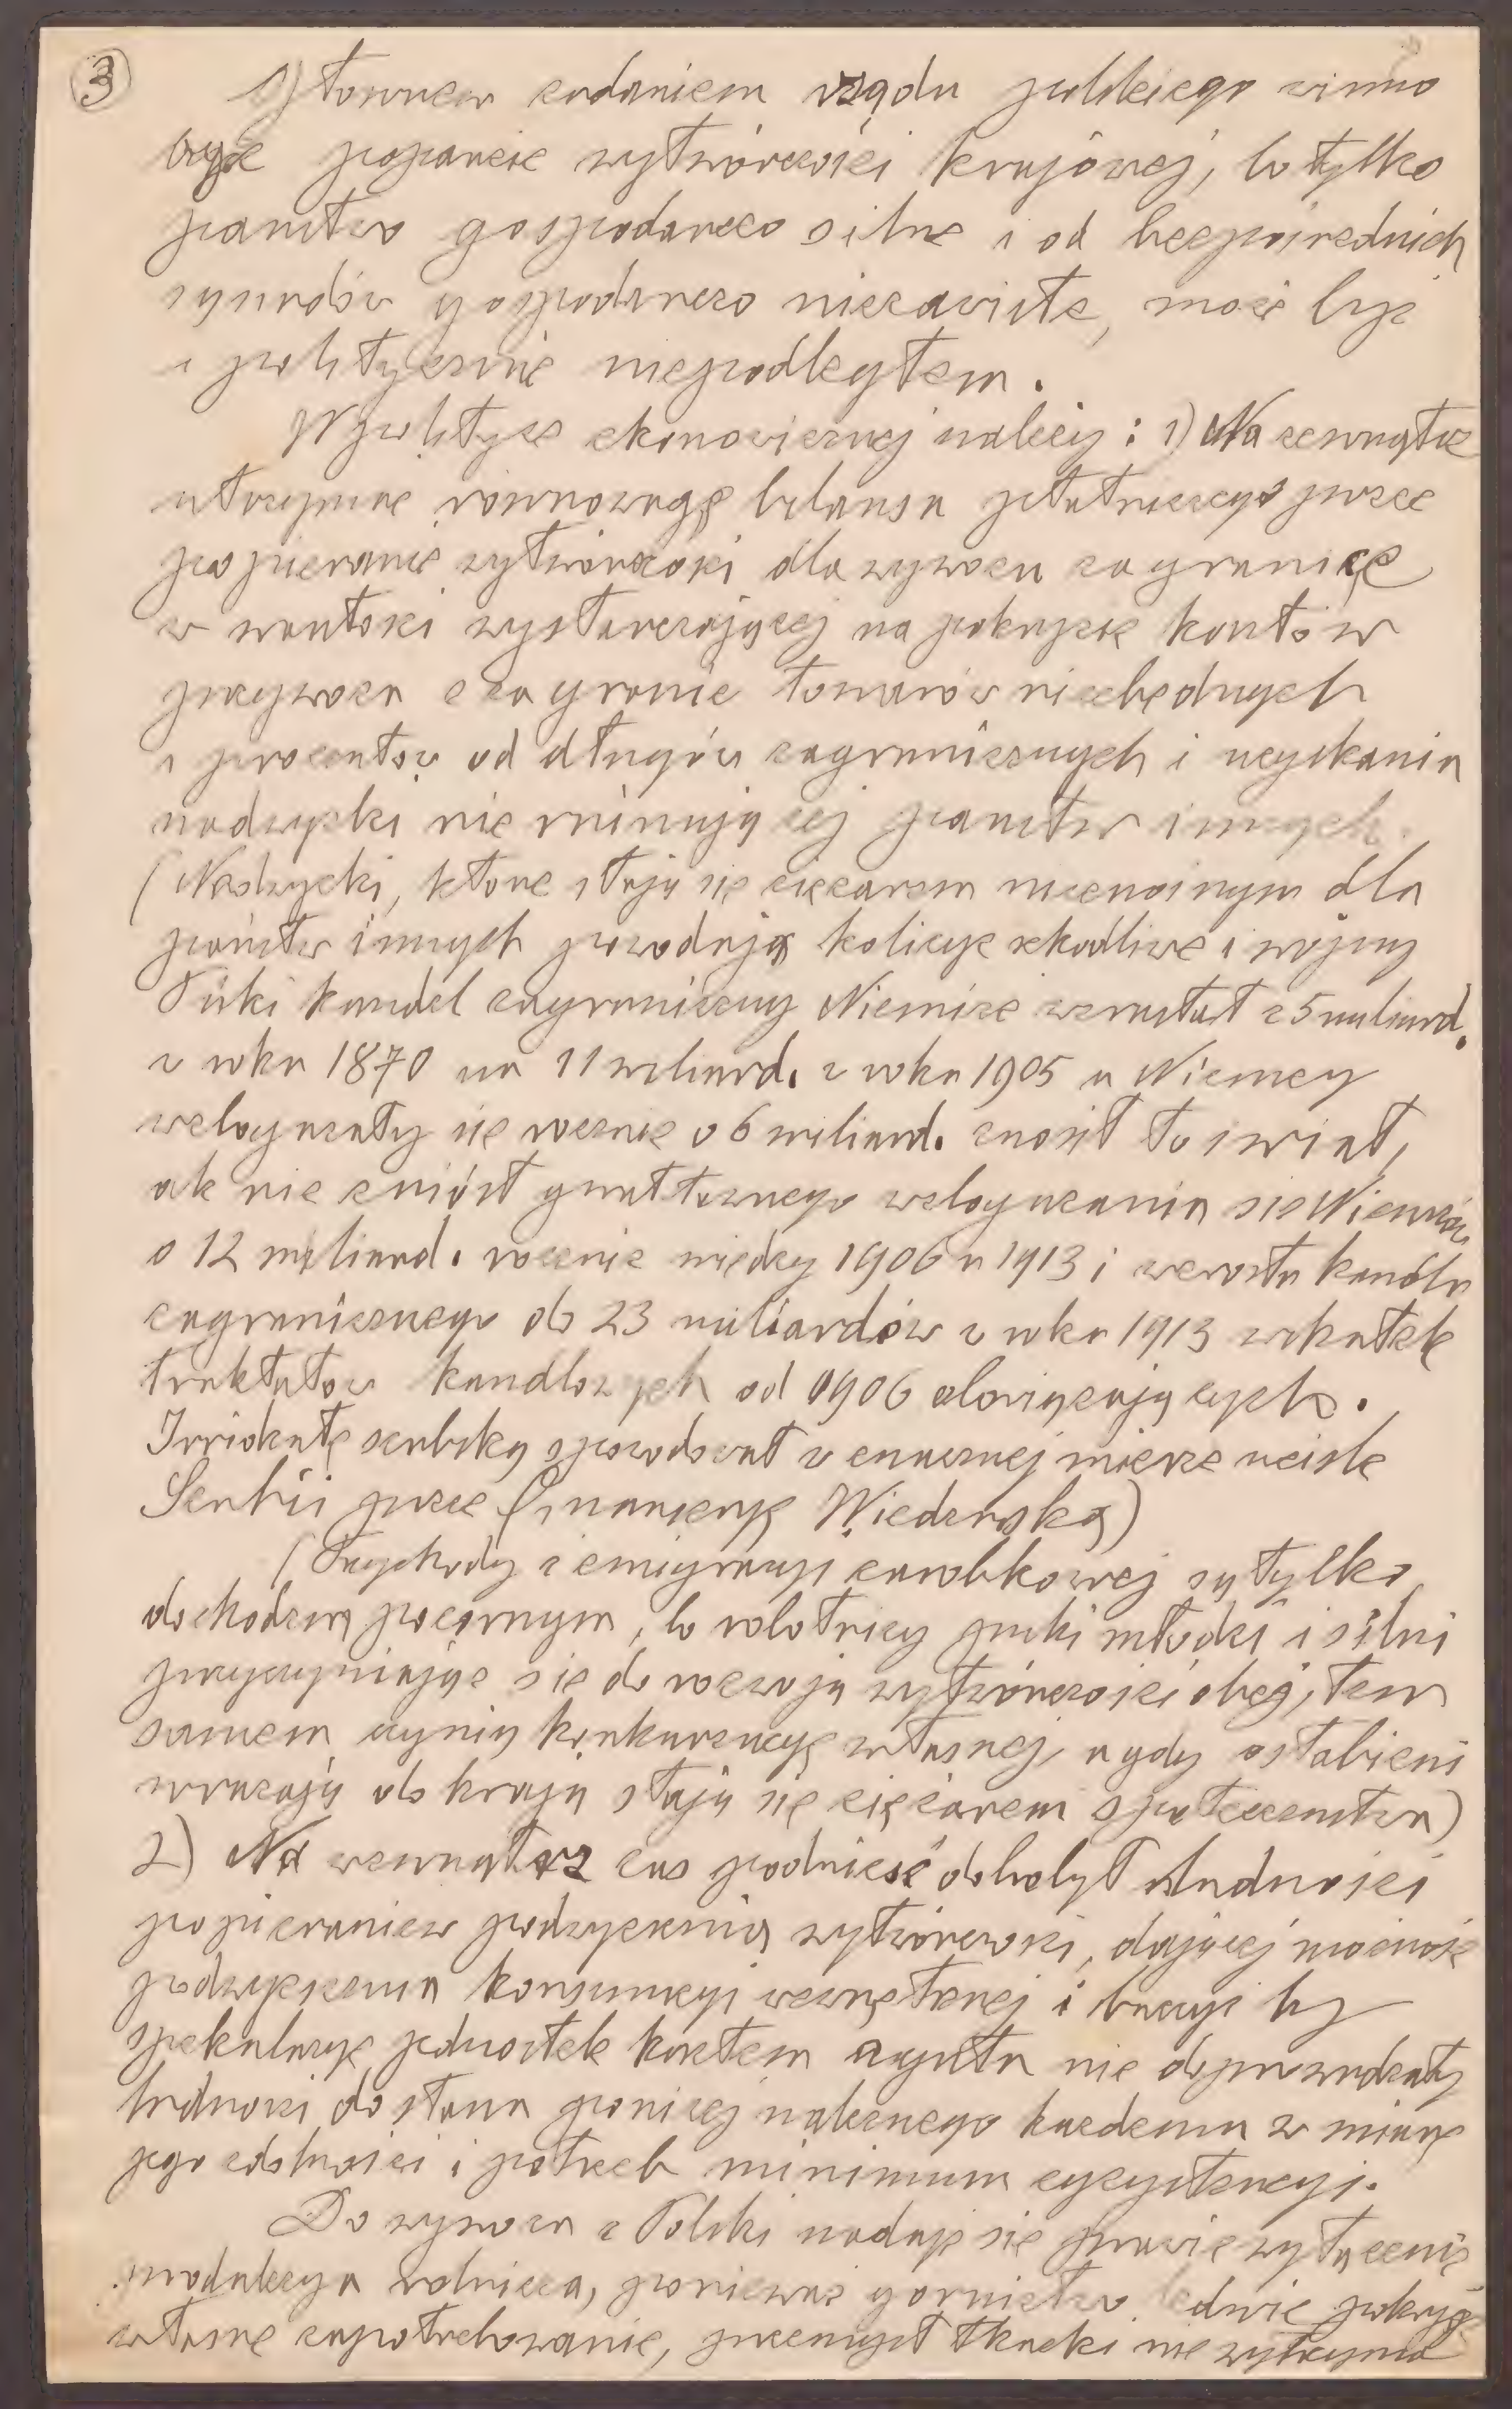 3
Głównem zadaniem rządu polskiego winno
być poparcie wytwórczości krajowej, bo tylko
państwo gospodarczo silne i od bezpośrednich
sąsiadów gospodarczo niezawisłe, może być
i politycznie niepodległem.
W polityce ekonomicznej należy: 1) Na zewnątrz
utrzymać równowagę bilansu płatniczego przez
popieranie wytwórczości dla wywozu zagranicę
w wartości wystarczającej na pokrycie kosztów
przywozu z zagranic towarów niezbędnych
i procentów od długów zagranicznych i uzyskania
nadwyżki nie rujnującej państw innych.
(Nadwyżki, które stają się ciężarem nieznośnym dla
państw innych powodują kolicye szkodliwe i wojny
Póki handel zagraniczny Niemiec wzrastał z 5 miliard.
w roku 1870 na 11 miliard. w roku 1905 a Niemcy
wzbogacały się rocznie o 6 miliard. znosił to świat,
ale nie zniósł gwałtownego wzbogacania się Niemców
o 12 miliard. rocznie między 1906 a 1913 i wzrostu handlu
zagranicznego do 23 miliardów w roku 1913 wskutek
traktatów handlowych od 1906 obowiązujących.
Irridentę serbską spowodował w znacznej mierze ucisk
Serbii przez finansieryę Wiedeńską)
(Przychody z emigracyi zarobkowej są tylko
dochodem pozornym, bo robotnicy póki młodzi i silni
przyczyniając się do rozwoju wytwórczości obcej, tem
samem czynią konkurencyę własnej, a gdy osłabieni
wracają do kraju stają się ciężarem społeczeństwa)
2) Na wewnątrz zaś podnieść dobrobyt ludności
popieraniem podwyższenia wytwórczości, dającej możność
podwyższenia konsumcyi wewnętrznej i baczyć by
spekulacye jednostek kosztem ogółu nie doprowadzały
ludności do stanu poniżej należnego każdemu w miarę
jego zdolności i potrzeb minimum egzystencyi.
Do wywozu z Polski nadaje się prawie wyłącznie
produkcya rolnicza, ponieważ górnictwo ledwie pokryje
własne zapotrzebowanie, przemysł tkacki nie wytrzyma